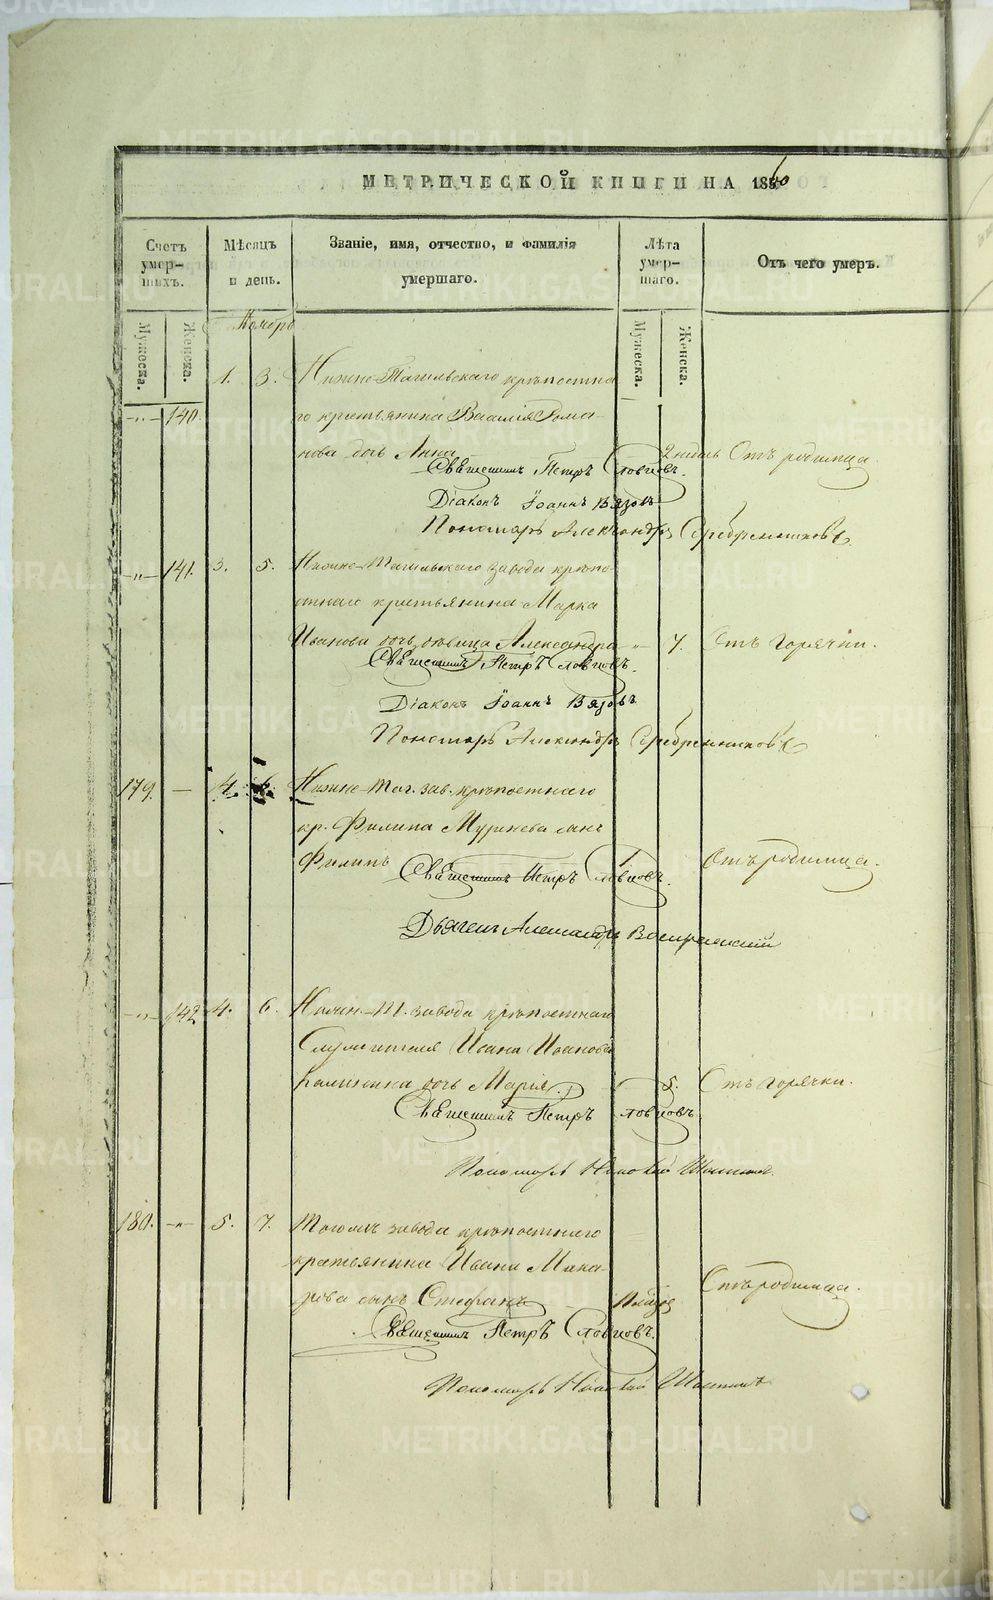 МЕТРИЧЕСКОЙ КНИГИ НА 1860
Счетъ умер-шихъ.
Мѣсяцъ и день.
Званіе, имя, отчество, и фамилія умершаго.
Лѣта умер-шаго.
Отъ чего умеръ.
Мужеска.
Женска.
Мужеска.
Женска.
Ноябрь
1. 3. Нижне-Тагильскаго крѣпостна
-"- 140. го крестьянина Василія Рома-
нова дочь Анна 2 недѣль Отъ родимца.
Священникъ Петръ Словцовъ.
Діаконъ Іоаннъ Вязовъ
Пономарь Александръ Серебренниковъ
-"- 141. 3. 5. Нижне-Тагильскаго завода крѣпо-
стнаго крестьянина Марка
Иванова дочь дѣвица Александра -"- 7. Отъ Горячки.
Священникъ Петръ Словцовъ.
Діаконъ Іоаннъ Вязовъ
Пономарь Александръ Серебренниковъ
179. - 4. 6. Нижне-Таг. зав. крѣпостнаго
кр. Филипа сынъ
Филипъ 1 Отъ родимца.
Священникъ Петръ Словцовъ.
Александръ Воскресенскій
-"- 142 4. 6. Нижн.-Т. завода крѣпостнаго
Служителя Ивана Иванова
дочь Марія 5. Отъ горячки.
Священникъ Петръ Словцовъ.
Пономарь
180. -"- 5. 7. завода крѣпостнаго
крестьянина Ивана Мака-
рова сынъ Стефанъ Отъ родимца.
Священникъ Петръ Словцовъ.
Пономарь
METRIKI.GASO-URAL.RU